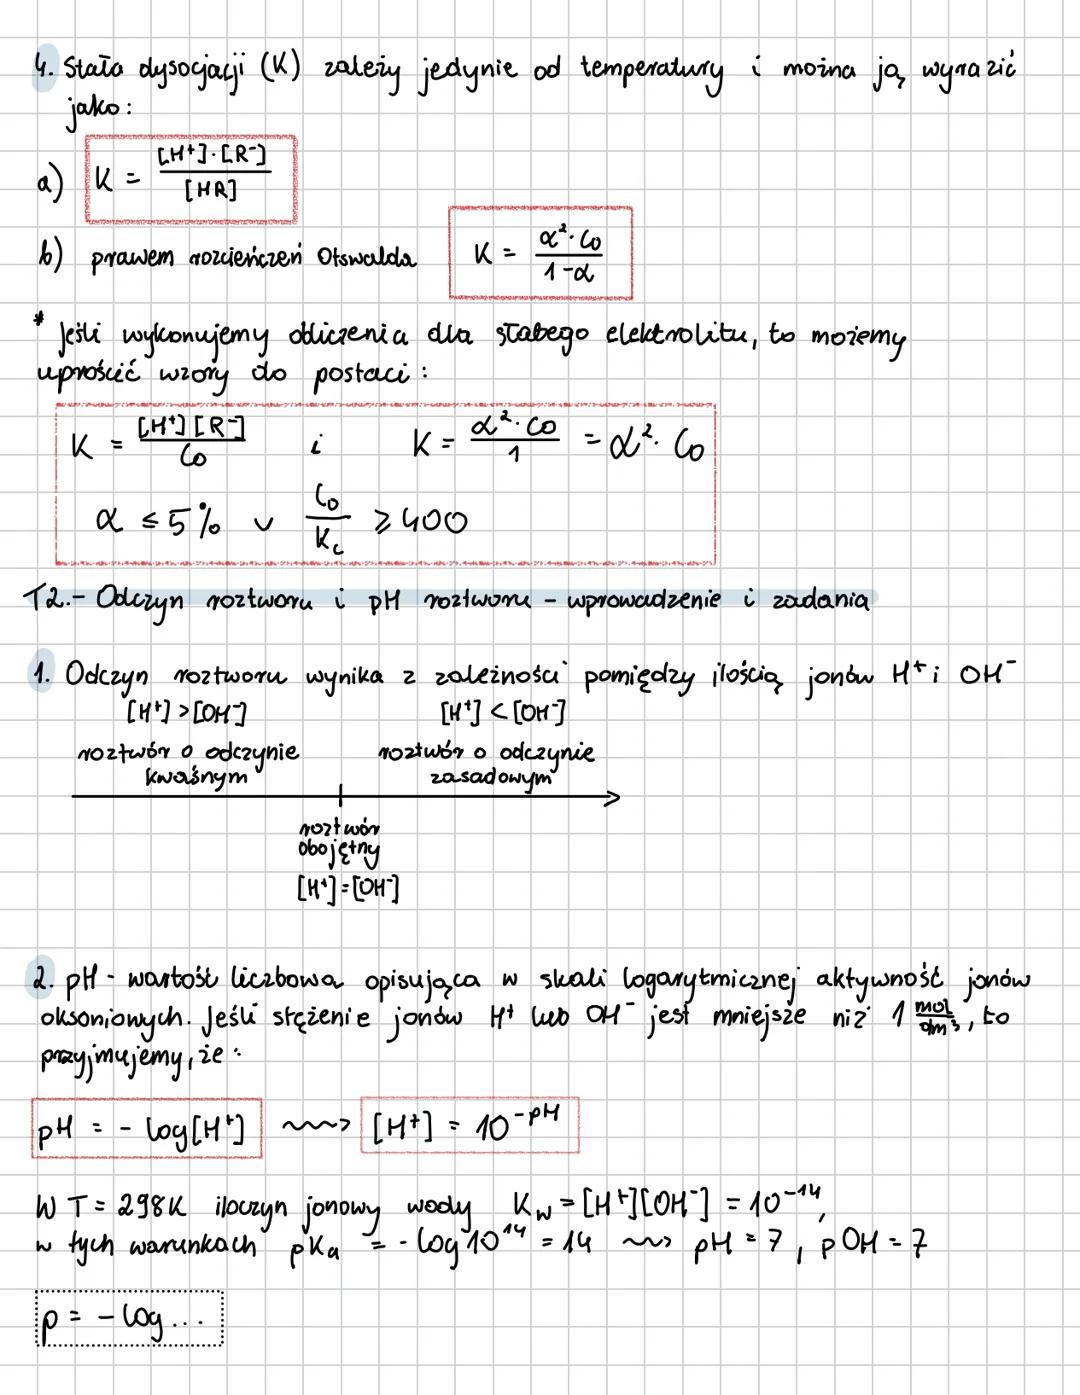 4. Stała dysocjacji (K) zależy jedynie od temperatury i można ją wyrazić
jako:
a) K = [H⁺]·[R⁻] / [HR]
b) prawem rozcieńczeń Otswalda K = α²·C₀ / 1-α
* Jeśli wykonujemy obliczenia dla słabego elektrolitu, to możemy
uprościć wzory do postaci:
K = [H⁺][R⁻] / C₀ i K = α²·C₀ / 1 = α²·C₀
α ≤ 5% v C₀ / Kc ≥ 400
T2.- Odczyn roztworu i pH roztworu - wprowadzenie i zadania
1. Odczyn roztworu wynika z zależności pomiędzy ilością jonów H⁺ i OH⁻
[H⁺] > [OH⁻] [H⁺] < [OH⁻]
roztwór o odczynie roztwór o odczynie
kwaśnym zasadowym
roztwór
obojętny
[H⁺] = [OH⁻]
2. pH - wartość liczbowa opisująca w skali logarytmicznej aktywność jonów
oksoniowych. Jeśli stężenie jonów H⁺ lub OH⁻ jest mniejsze niż 1 mol/dm³, to
przyjmujemy, że:
pH = - log[H⁺] ⟿ [H⁺] = 10^-pH
W T = 298K iloczyn jonowy wody Kw = [H⁺][OH⁻] = 10⁻¹⁴,
w tych warunkach pKa = - log 10¹⁴ = 14 ⟿ pH = 7, pOH = 7
p = - log...